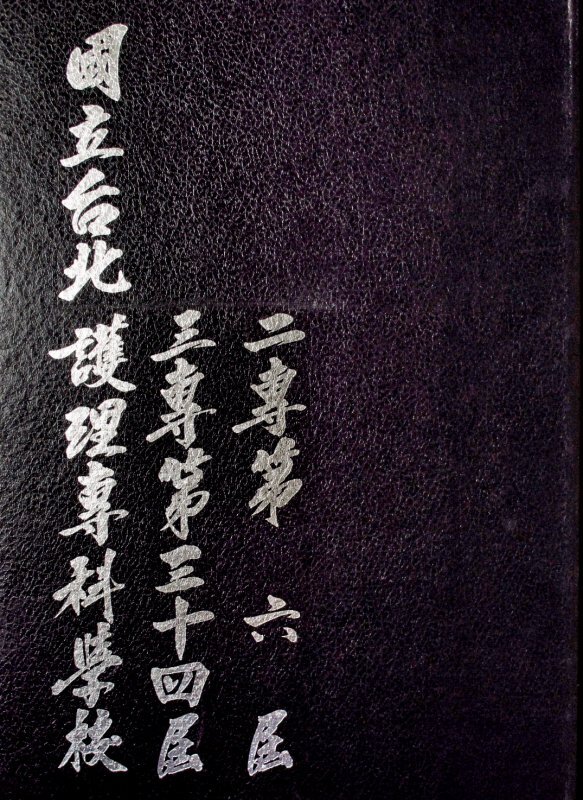 二專第六屆
三專第三十四屆
國立台北護理專科學校